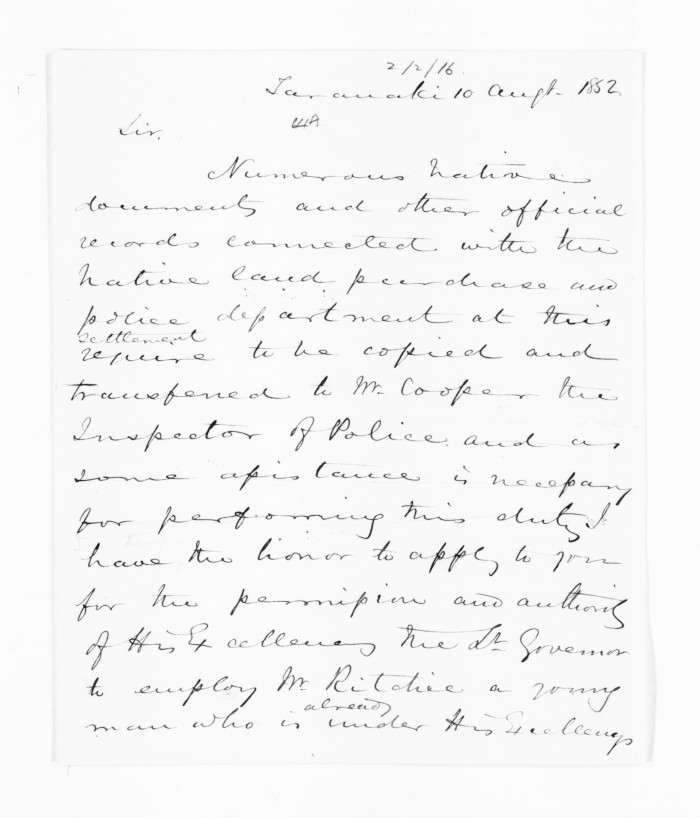 2/2/16.
Taranaki 10 Augt. 1852.
Sir.
Numerous native
documents and other official
records connected with the
native land purchase and
police department at this
settlement
require to be copied and
transferred to Mr. Cooper the
Inspector of Police and as
some assistance is necessary
for performing this duty I
have the honor to apply to you
for the permission and authority
of His Excellency the Lt. Governor
to employ Mr. Ritchie a young
already
man who is under His Excellencys